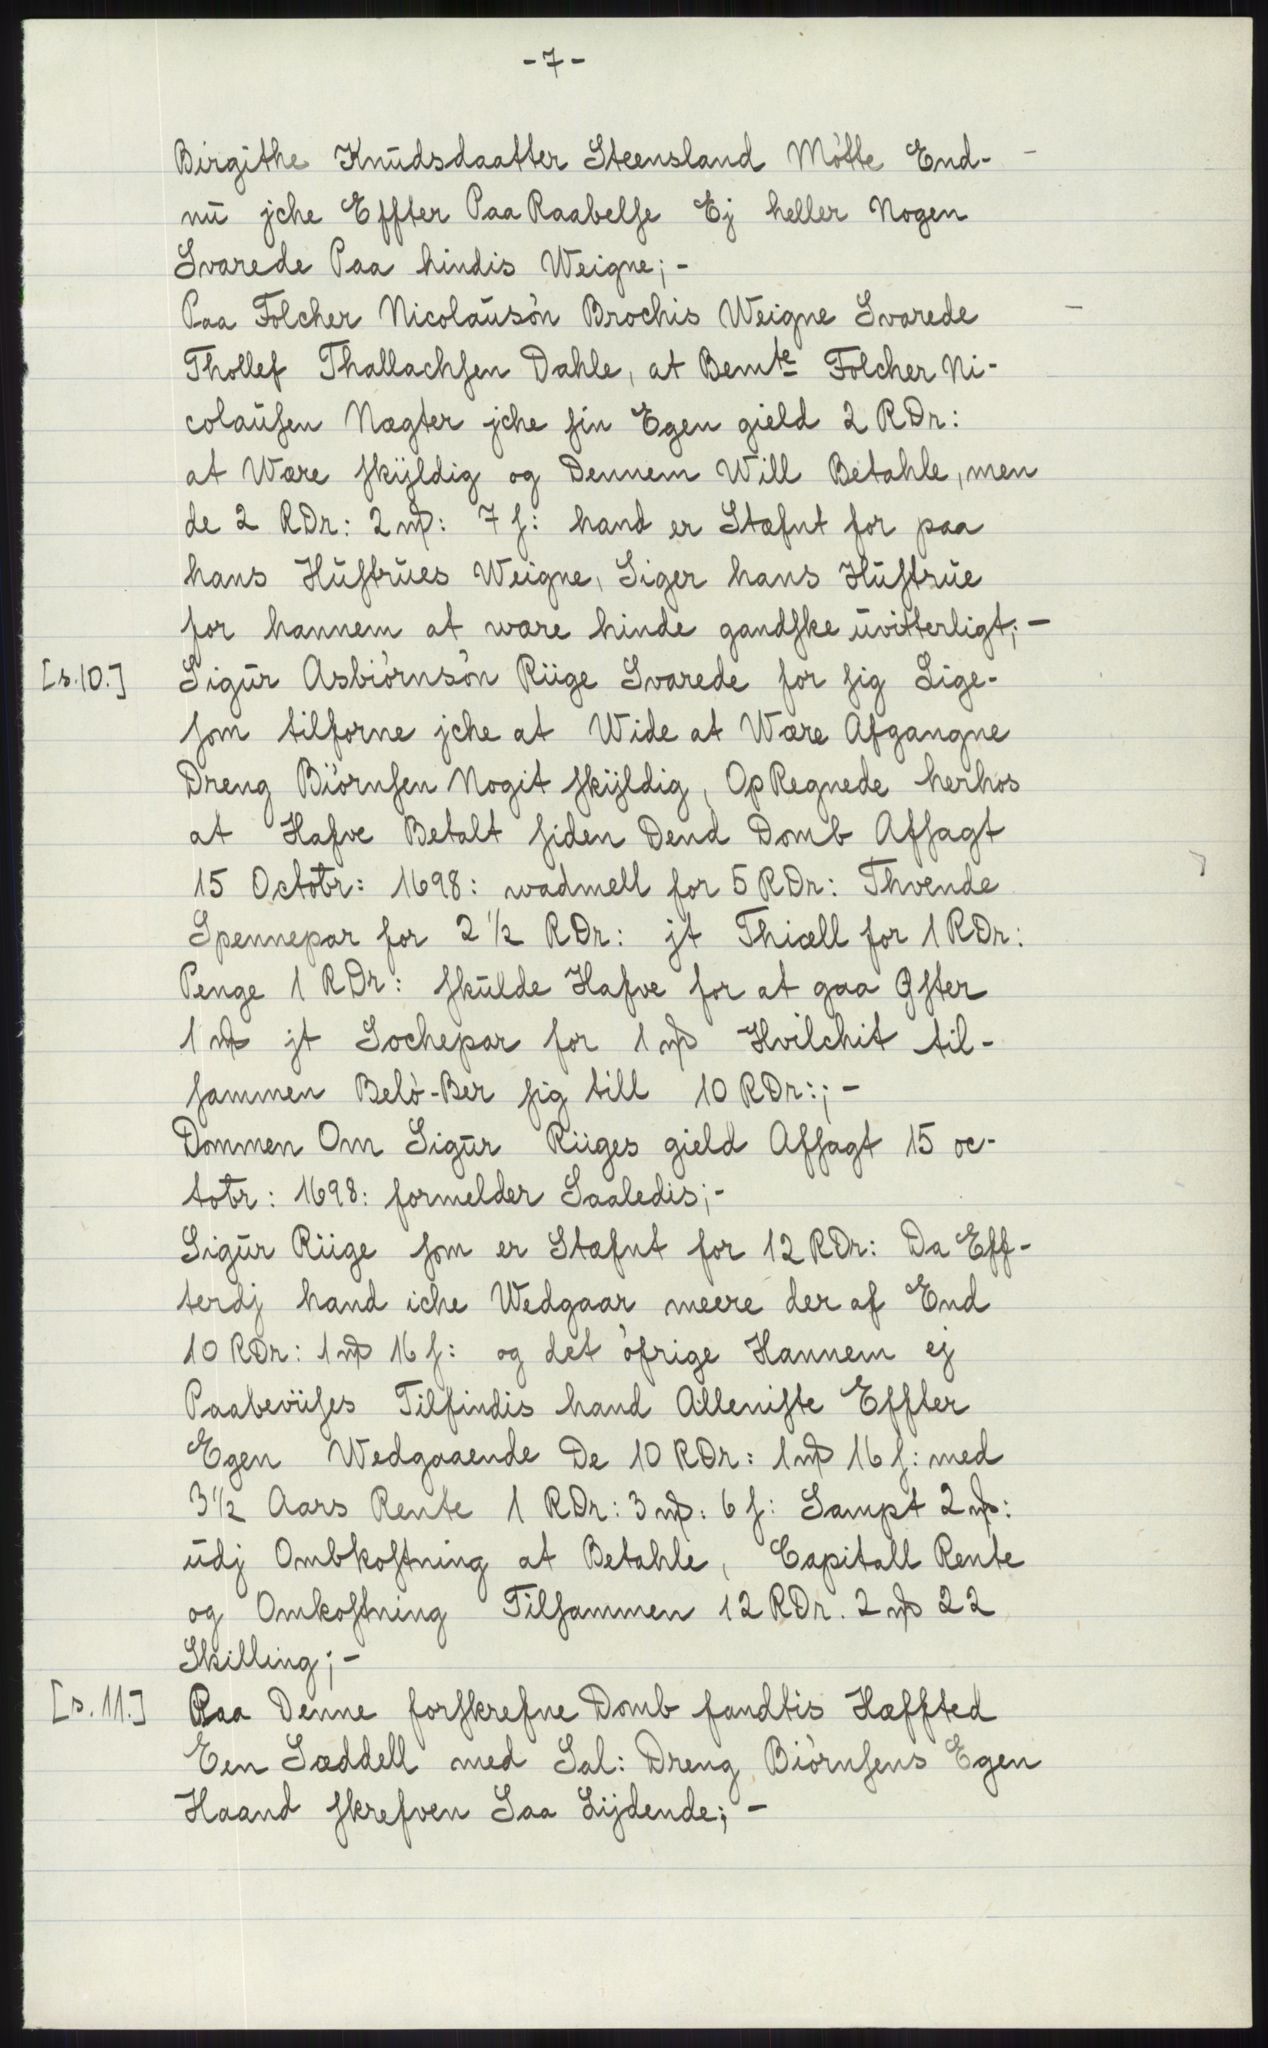 -7-
Birgithe Knudsdaatter Steensland Mötte End-
nu jche Effter Paa Raabelse Ej heller Nogen
Svarede Paa hindis Weigne; -
Paa Folcher Nicolausön Brochis Weigne Svarede
Thollef Thallachsen Dahle, at Bemte Folcher Ni-
colausen Nægter jche sin Egen gield 2 RDr:
at Være skÿldig og Dennem Will Betahle, men
de 2 RDr: 2 mß: 7 s: hand er Stæfnt for paa
hans Hustrues Weigne, Siger hans Hustrue
for hannem at være hinde gandske uvitterligt; -
[s.10.] Sigur Asbiörnsön Riige Svarede for sig Lige-
som tilforne jche at Wide at Være Afgangne
Dreng Biörnsen Nogit skÿldig, OpRegnede herhos
at Hafve Betalt siden Dend Domb Afsagt
15 Octobr: 1698: wadmell for 5 RDr: Thvende
Spennepar for 2 1/2 RDr: jt Thiæll for 1 RDr:
Penge 1 RDr: skulde Hafve for at gaa Effter
1 mß jt Sochepar for 1 mß Hvilchit til-
sammen Belö-Ber sig till 10 RDr:; -
Dommen Om Sigur Riiges gield Afsagt 15 oc-
tobr: 1698: formelder Saaledis; -
Sigur Riige som er Stæfnt for 12 RDr: Da Eff-
terdj hand iche Wedgaar meere der af End
10 RDr: 1 mß 16 s: og det öfrige Hannem ej
Paabeviises Tilfindis hand Alleniste Effter
Egen Wedgaaende De 10 RDr: 1 mß 16 s: med
3 1/2 Aars Rente 1 RDr: 3 mß: 6 s: Sampt 2 mß:
udj Ombkostning at Betahle, Capitall Rente
og Omkostning Tilsammen 12 RDr. 2 mß 22
Skilling; -
[s. 11.] Paa Denne forskrefne Domb fandtis Hæffted
Een Sæddell med Sal: Dreng Biörnsens Egen
Haand skrefven Saa Lÿdende; -